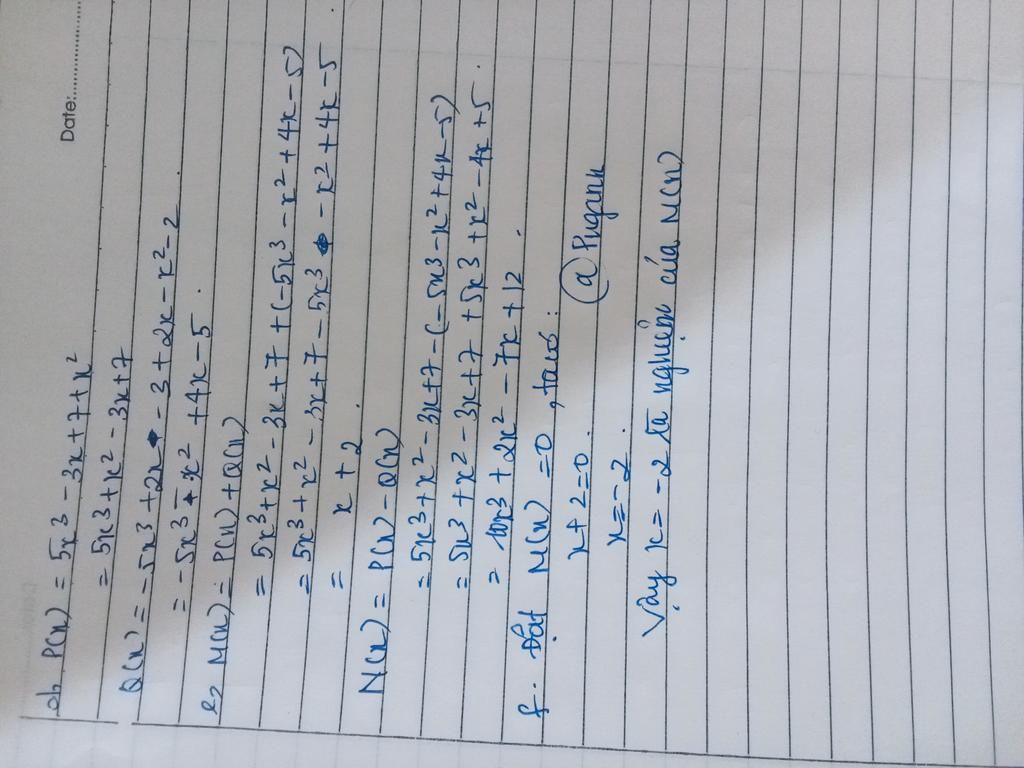 Date:
d, P(x) = 5x³ - 3x + 7 + x²
= 5x³ + x² - 3x + 7
Q(x) = -5x³ + 2x - 3 + 2x - x² - 2
= -5x³ - x² + 4x - 5.
e, M(x) = P(x) + Q(x)
= 5x³ + x² - 3x + 7 + (-5x³ - x² + 4x - 5)
= 5x³ + x² - 3x + 7 - 5x³ - x² + 4x - 5
= x + 2.
N(x) = P(x) - Q(x)
= 5x³ + x² - 3x + 7 - (-5x³ - x² + 4x - 5)
= 5x³ + x² - 3x + 7 + 5x³ + x² - 4x + 5.
= 10x³ + 2x² - 7x + 12.
f. Đặt M(x) = 0, ta có:
x + 2 = 0.
x = -2.
Vậy x = -2 là nghiệm của M(x)